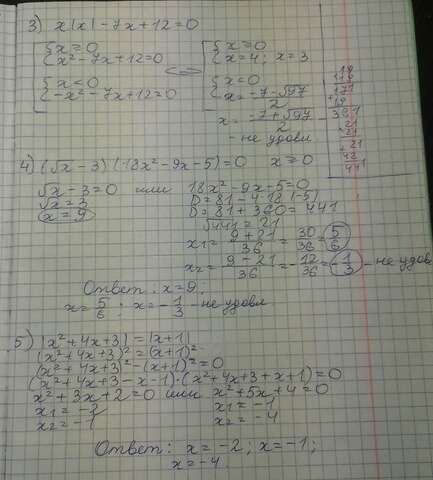 3) x|x| - 7x + 12 = 0
{x ⩾ 0
{x² - 7x + 12 = 0
{x < 0
{-x² - 7x + 12 = 0
<=>
{x ⩾ 0
{x = 4; x = 3
{x < 0
{x = (-7 - √97)/2
x = (-7 + √97)/2
- не удовл
4) (√x - 3)(18x² - 9x - 5) = 0 x ⩾ 0
√x - 3 = 0 или 18x² - 9x - 5 = 0
√x = 3 D = 81 - 4·18·(-5)
x = 9 D = 81 + 360 = 441
√441 = 21
x₁ = (9 + 21)/36 = 30/36 = 5/6
x₂ = (9 - 21)/36 = -12/36 = -1/3 - не удов
Ответ: x = 9.
x = 5/6; x = -1/3 - не удовл
5) |x² + 4x + 3| = |x + 1|
(x² + 4x + 3)² = (x + 1)²
(x² + 4x + 3)² - (x + 1)² = 0
(x² + 4x + 3 - x - 1)·(x² + 4x + 3 + x + 1) = 0
x² + 3x + 2 = 0 или x² + 5x + 4 = 0
x₁ = -2 x₁ = -1
x₂ = -1 x₂ = -4
Ответ: x = -2; x = -1;
x = -4.